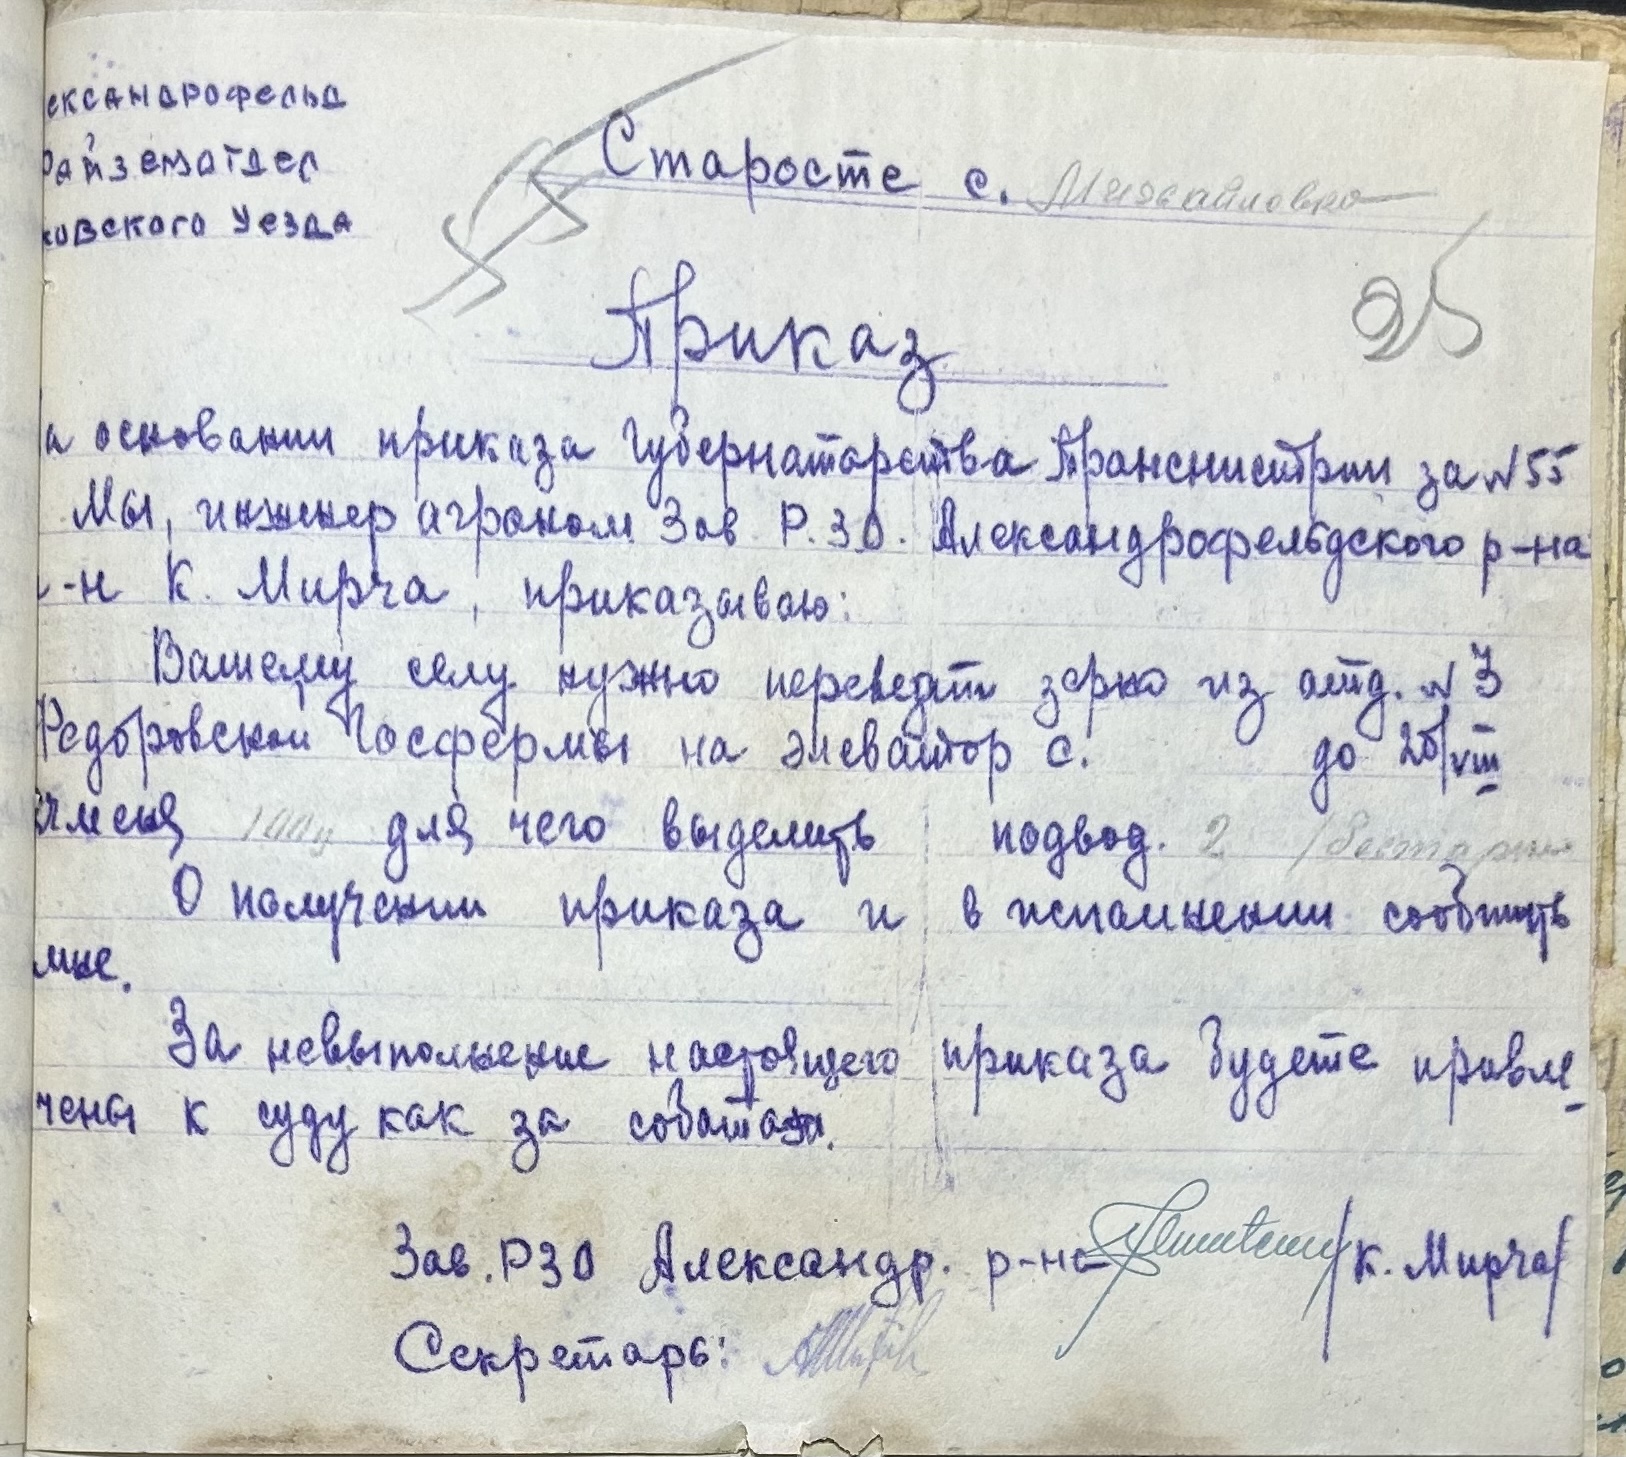 ександрофельд
Райземотдел
ковского Уезда
Старосте с. Михайловка
25
Приказ
а основании приказа Губернаторства Транснистрии за №55
Мы, инженер агроном Зав. Р.З.О. Александрофельдского р-на
-н К. Мирча, приказываю:
Вашему селу нужно переведти зерно из отд. №3
Федоровской Госфермы на элеватор с. до 25/VIII
ячменя 100ц для чего выделить подвод. 2
О получении приказа и в исполнении сообщить
мне.
За невыполнение настоящего приказа будете привле
чены к суду как за соботаж.
Зав. РЗО Александр. р-на /К. Мирча/
Секретарь: